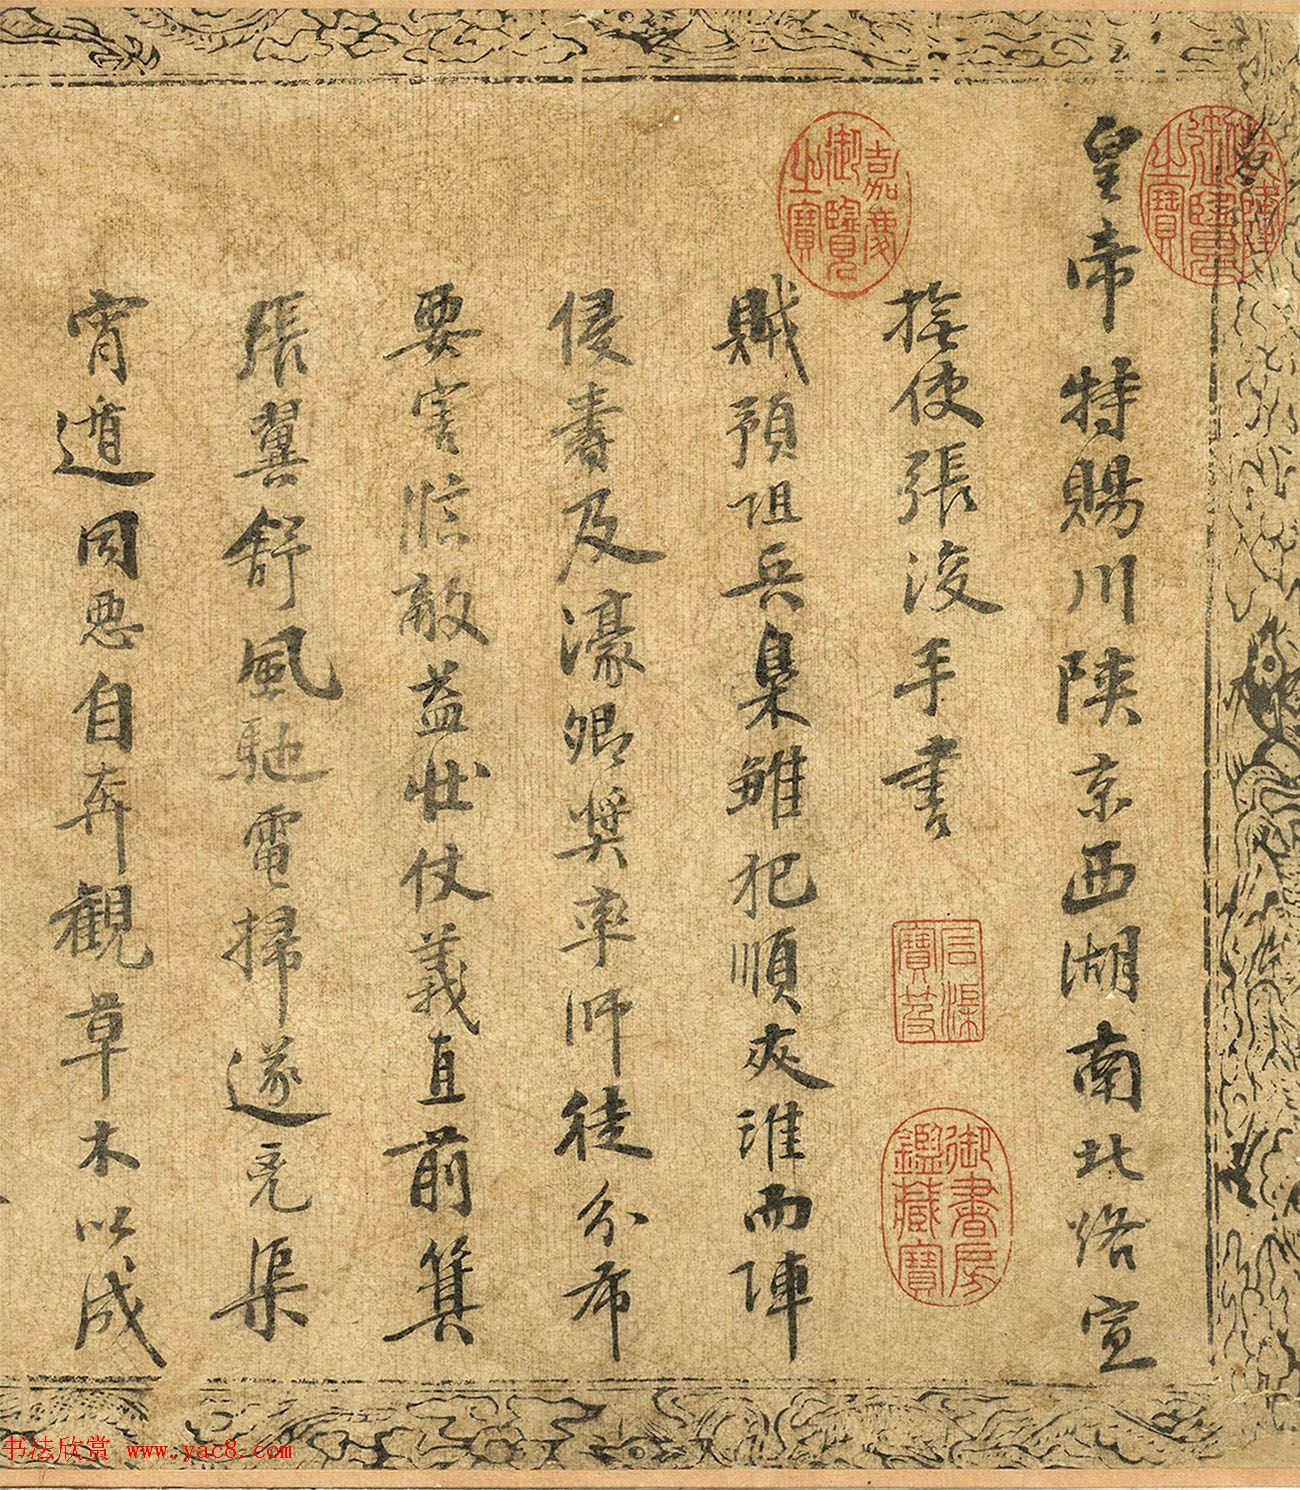 皇帝特賜川陝京西湖南北路宣
撫使張浚手書
賊預阻兵梟雏犯順夾淮而陣
侵壽及濠卿奬率師徒分布
要害臨敵益壯仗義直前箕
張翼舒風馳電掃遂完渠
宵遁同惡自奔觀草木以成
嘉慶御覽之寶
乾隆御覽之寶
石渠寶笈
御書房鑑藏寶
书法欣赏 www.yac8.com